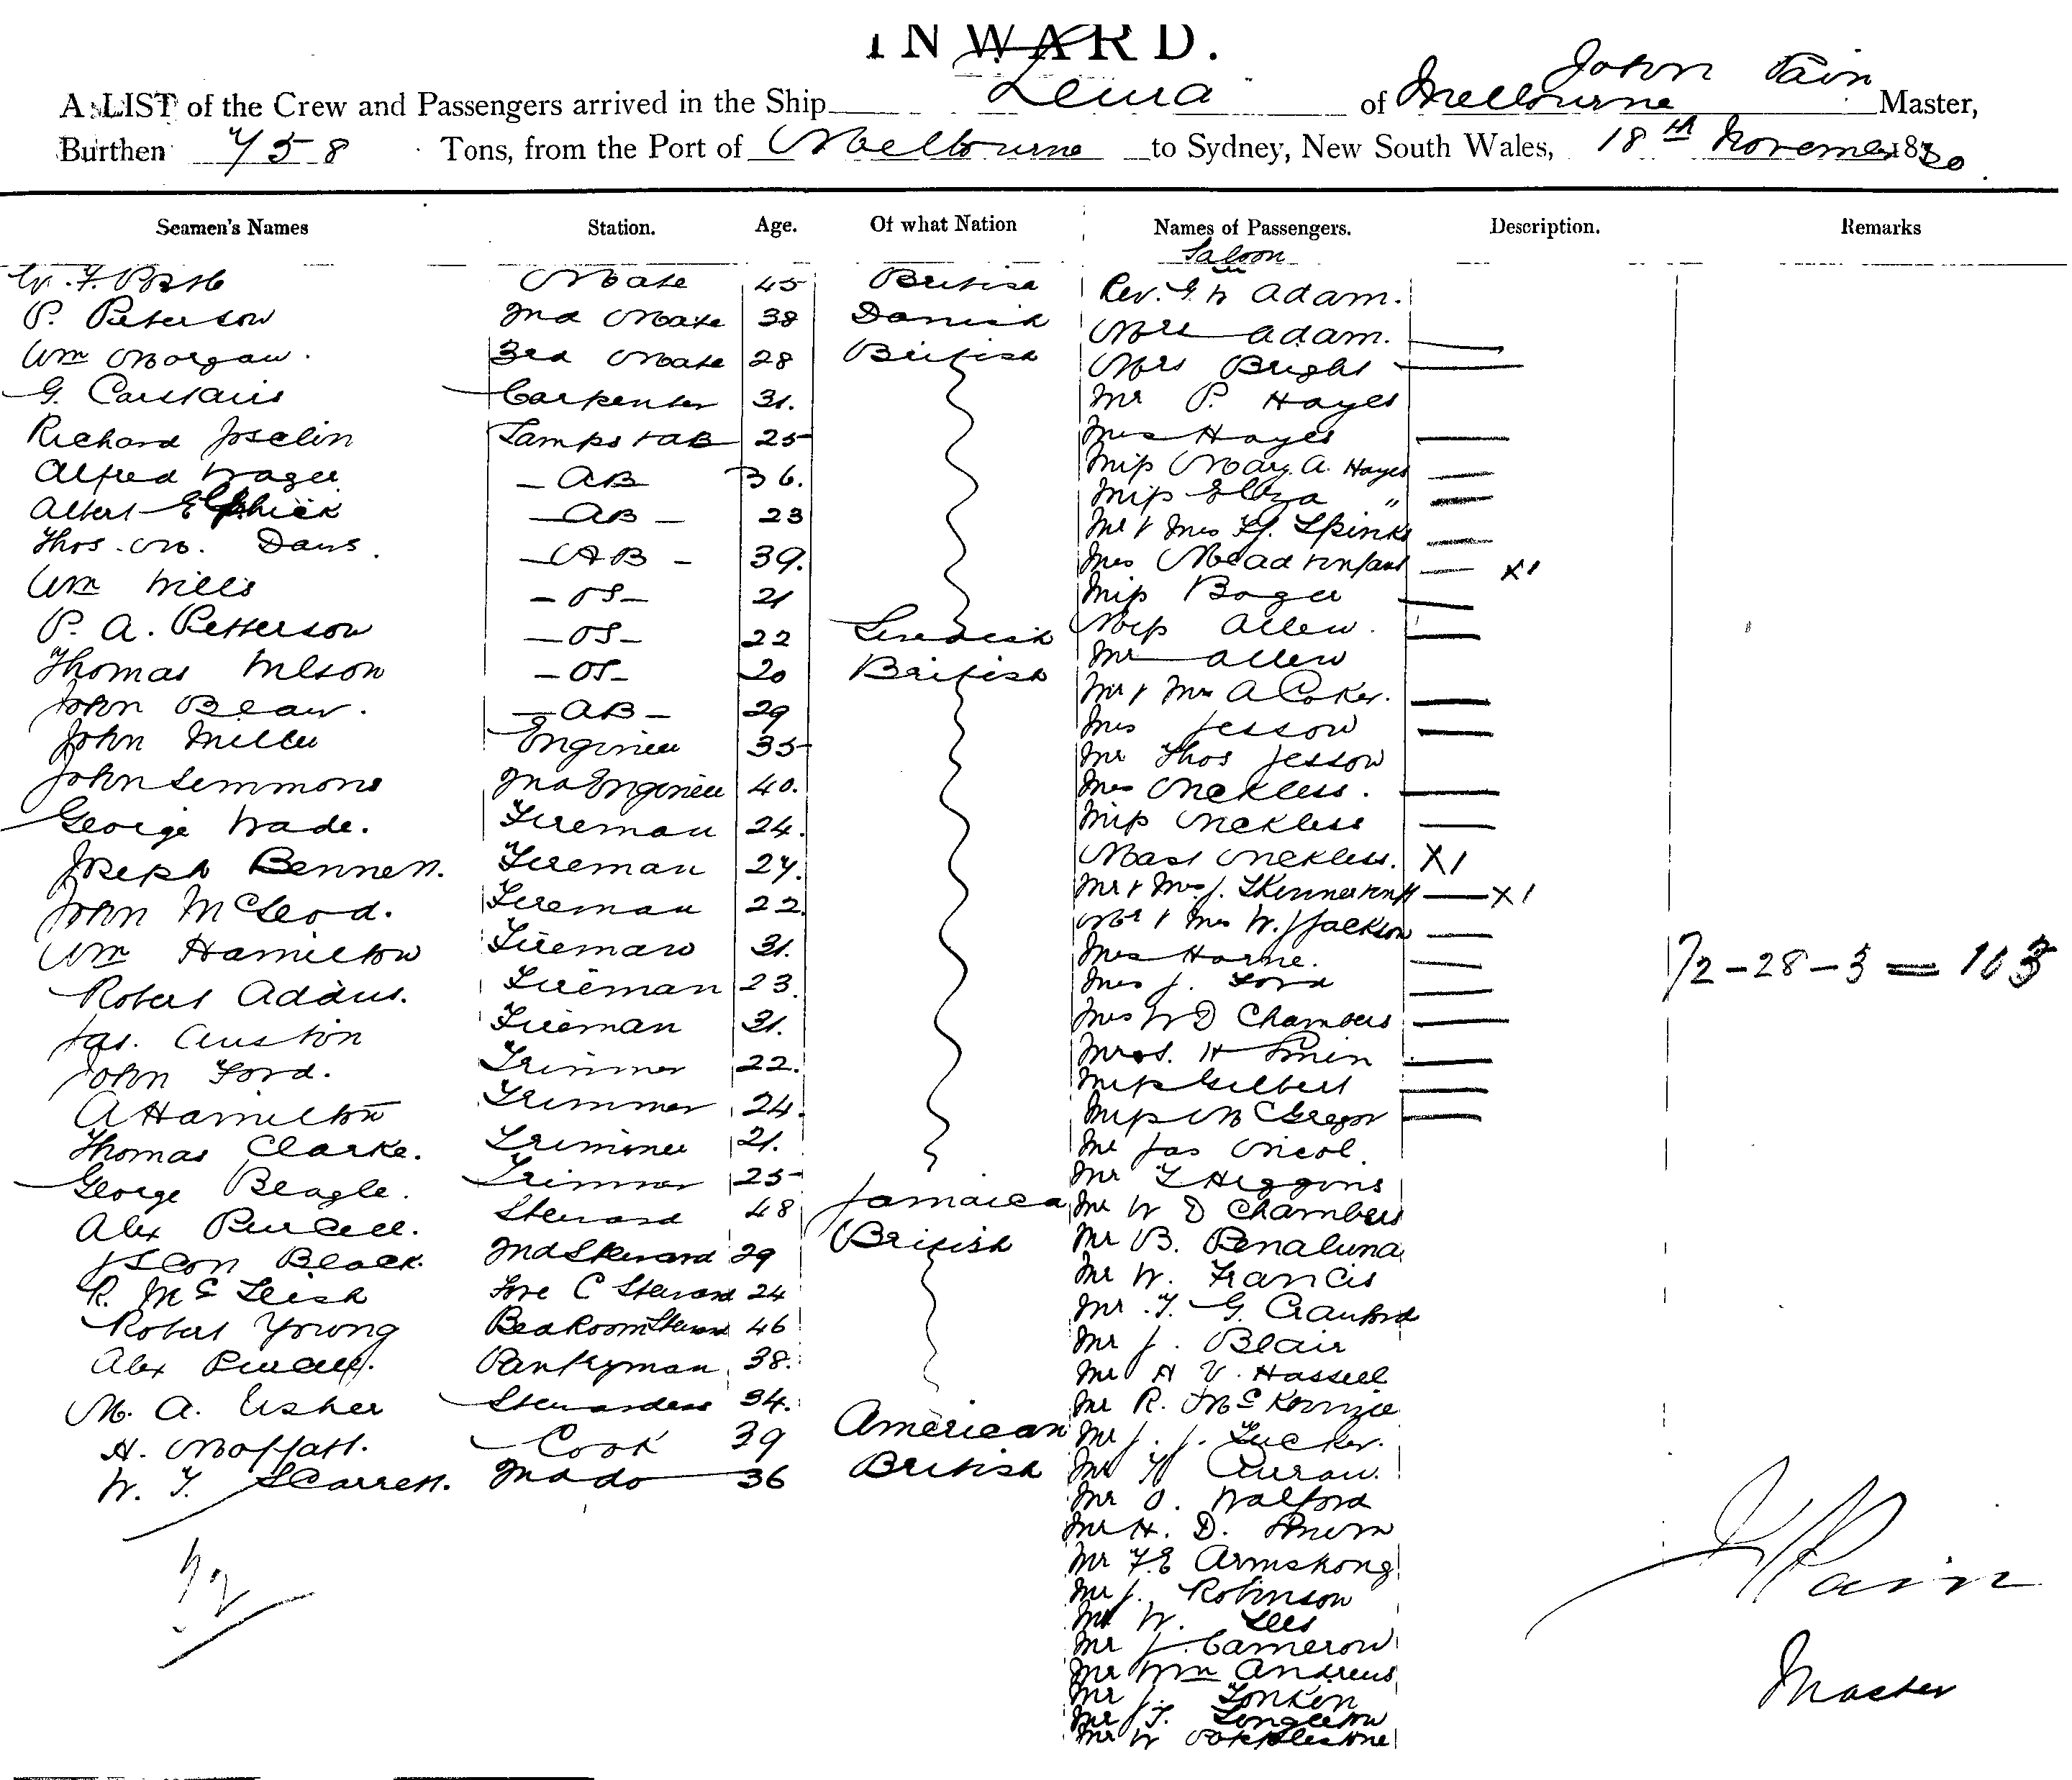 INWARD.
John Pain
A LIST of the Crew and Passengers arrived in the Ship Leura of Melbourne Master,
Burthen 758 Tons, from the Port of Melbourne to Sydney, New South Wales, 18th November 1880.
Seamen's Names Station. Age. Of what Nation Names of Passengers. Description. Remarks
Saloon
Mate 45 British Rev. G. W Adam.
P. Peterson 2nd Mate 38 Danish Mrs Adam.
Wm Morgan. 3rd Mate 28 British Mrs Bright
G. Carstairs Carpenter 31. Mr P. Hayes
Richard Joselin Lamps & AB 25 Mrs Hayes
Alfred Wager AB 36. Miss Mary. A. Hayes
Albert Elphick AB 23 Miss Eliza "
Thos. M. Daws. AB 39. Mr & Mrs Spinks
Wm Wills OS 21 Mrs Mead & infant X1
P. A. Petterson OS 22 Swedish Miss Boger
Thomas Wilson OS 20 British Miss Allen.
John Bean. AB 29 Mr Allen
John Miller Engineer 35 Mr & Mrs A Coker.
John Semmons 2nd Engineer 40. Mrs Jessow
George Wade. Fireman 24. Mr Thos Jessow
Joseph Bennett. Fireman 27. Mrs Nekless.
John McLeod. Fireman 22. Miss Nekless
Wm Hamilton Fireman 31. Mast Nekless. X1
Robert Addis. Fireman 23. Mr & Mrs J. Skinner & inft X1
Jas. Austin Fireman 31. Mr & Mrs W. J Jackson
John Ford. Trimmer 22. Mrs Horne.
A Hamilton Trimmer 24. Mrs J. Ford
Thomas Clarke. Trimmer 21. Mrs W D Chambers
George Beagle. Trimmer 25 Mrs S. H
Alex Purcell. Steward 48 Jamaica Miss Gilbert
Black. 2nd Steward 29 British Miss McGregor
R. McLeish Fore C Steward 24 Mr Jas Nicol.
Robert Young Bed Room Steward 46 Mr T Higgins
Alex Purcell. Pantryman 38. Mr W D Chambers
M. A. Usher Stewardess 34. Mr B. Penaluna
H. Moffatt. Cook 39 American Mr W. Francis
W. T. Scarrett. 2nd do 36 British Mr T. G. Crauford
Mr J. Blair
Mr A V. Hassell
Mr R. McKenzie
Mr J. J. Tucker.
Mr Curran.
Mr O. Walford
Mr H. D.
Mr F. E Armstrong
Mr J. Robinson
Mr W. Lees
Mr J. Cameron
Mr Wm Andrews
Mr J. Tonkin
Mr T. Singleton
Mr W Popplestone
72-28-3 = 103
72
J Pain
Master